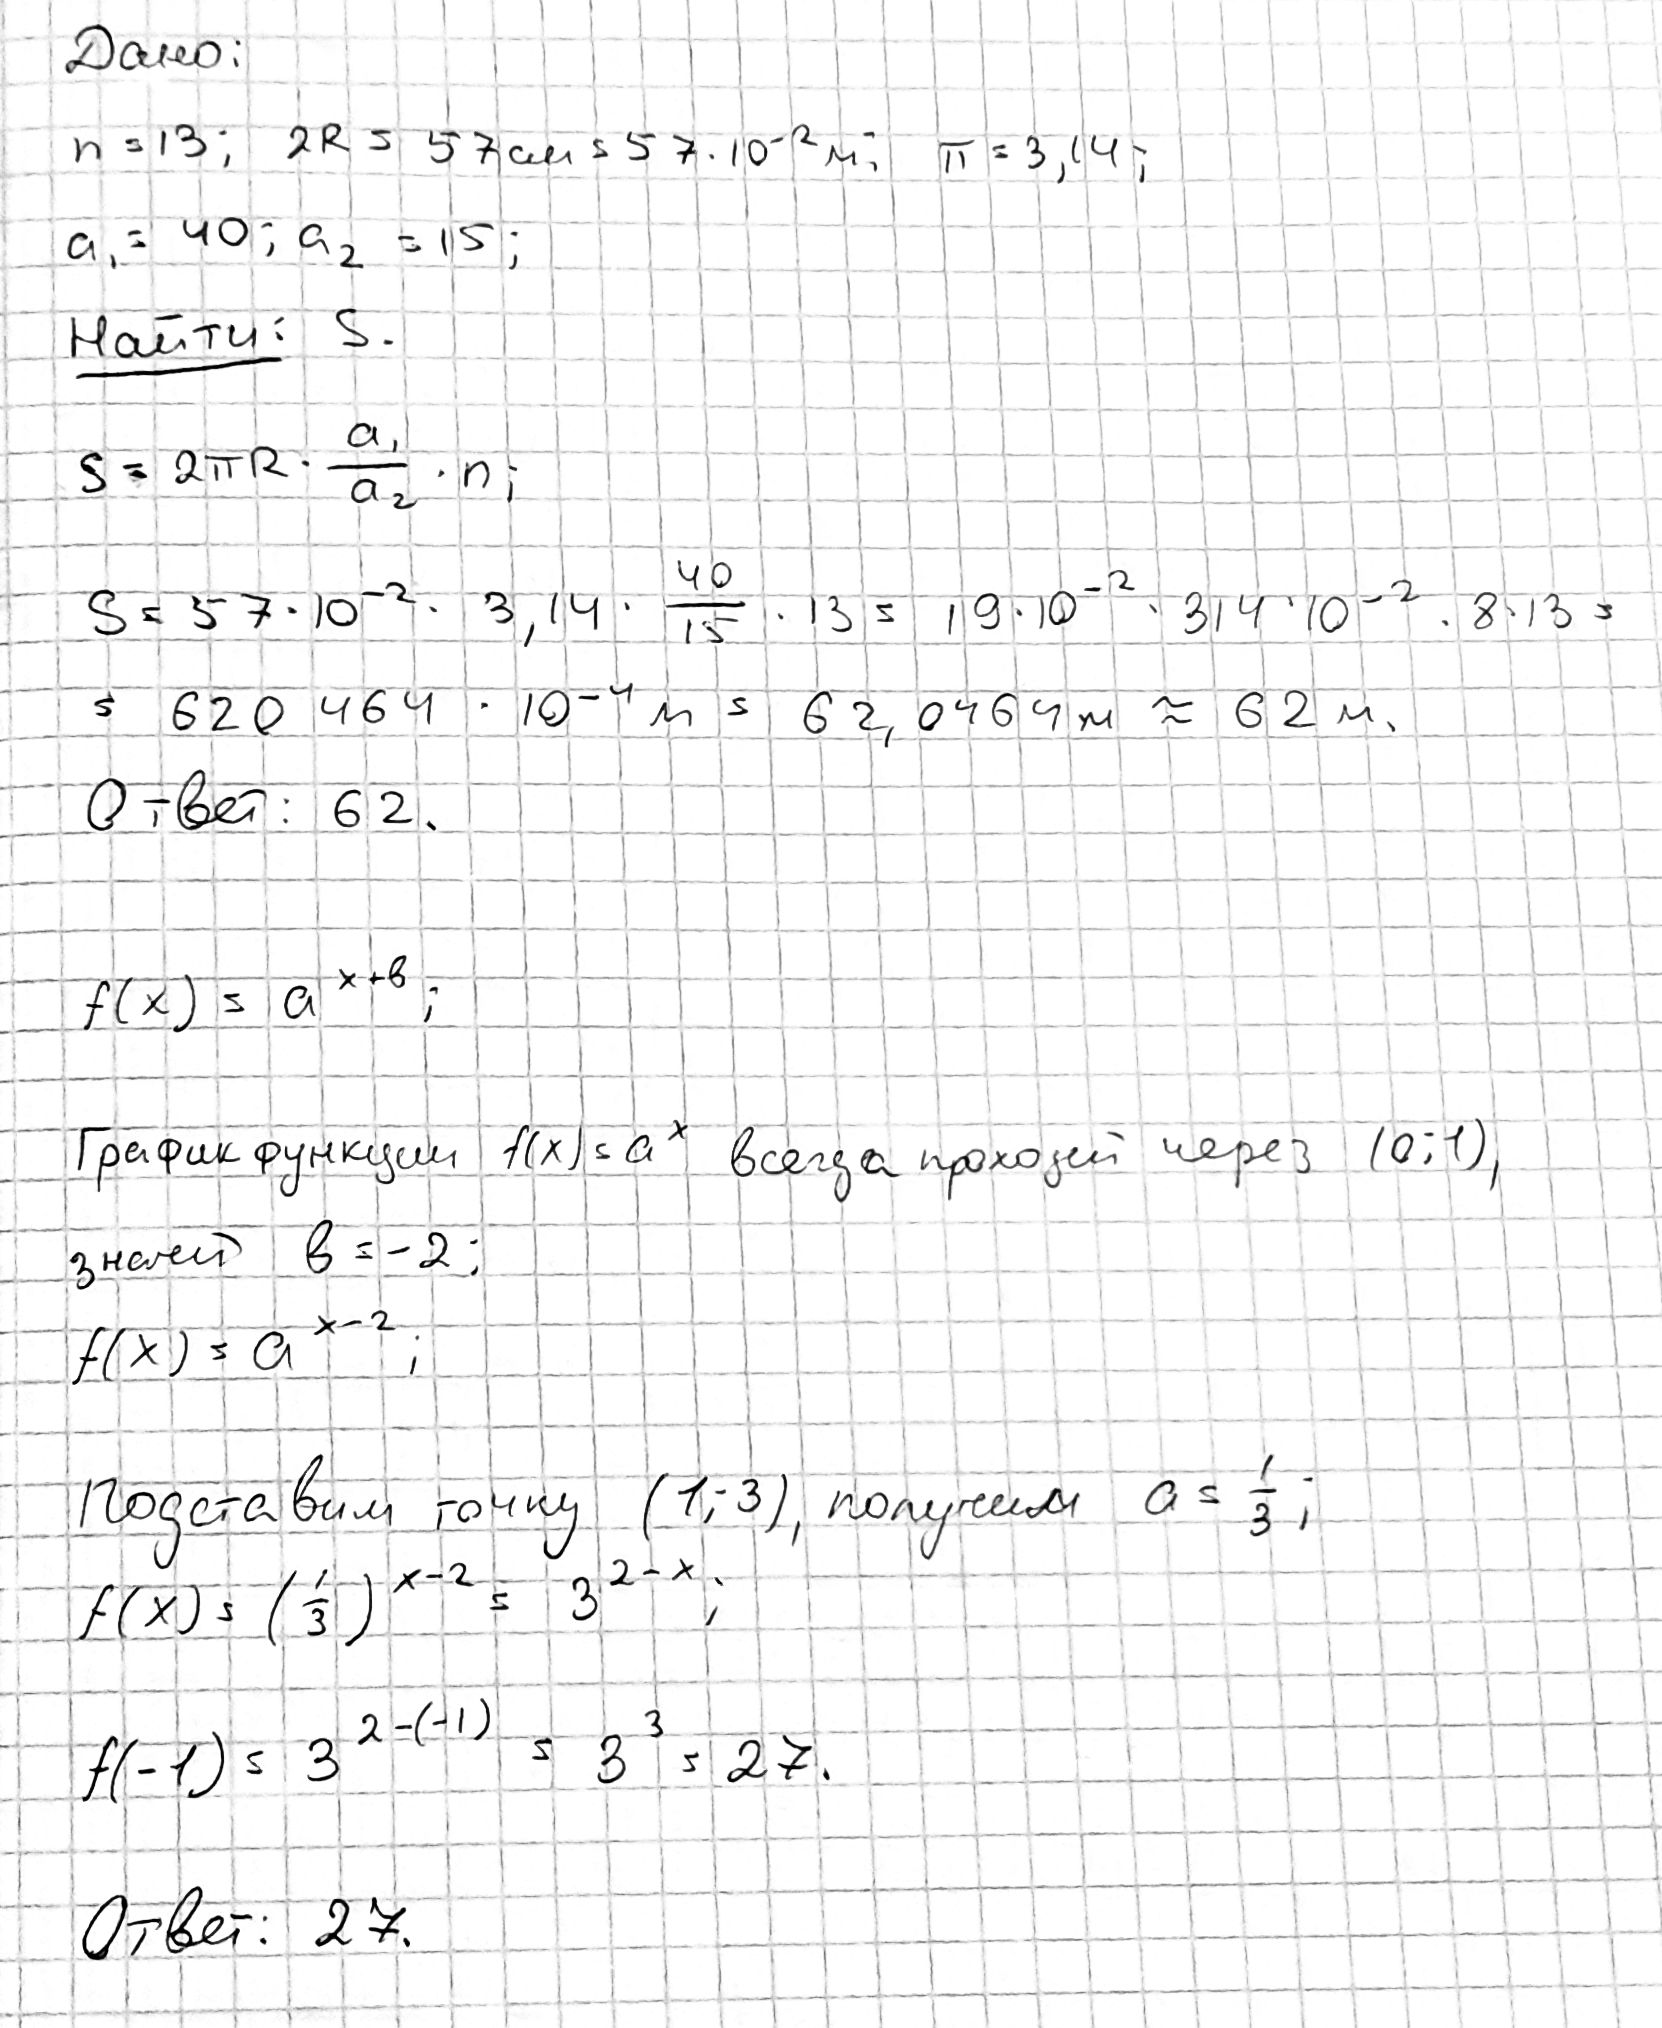 Дано:
n = 13; 2R = 57 см = 57 · 10⁻² м; π = 3,14;
a₁ = 40; a₂ = 15;
Найти: S.
S = 2πR · a₁/a₂ · n;
S = 57 · 10⁻² · 3,14 · 40/15 · 13 = 19 · 10⁻² · 314 · 10⁻² · 8 · 13 =
= 620 464 · 10⁻⁴ м = 62,0464 м ≈ 62 м.
Ответ: 62.
f(x) = a^(x+b);
График функции f(x) = a^x всегда проходит через (0;1),
значит b = -2;
f(x) = a^(x-2);
Подставим точку (1;3), получим a = 1/3;
f(x) = (1/3)^(x-2) = 3^(2-x);
f(-1) = 3^(2-(-1)) = 3³ = 27.
Ответ: 27.